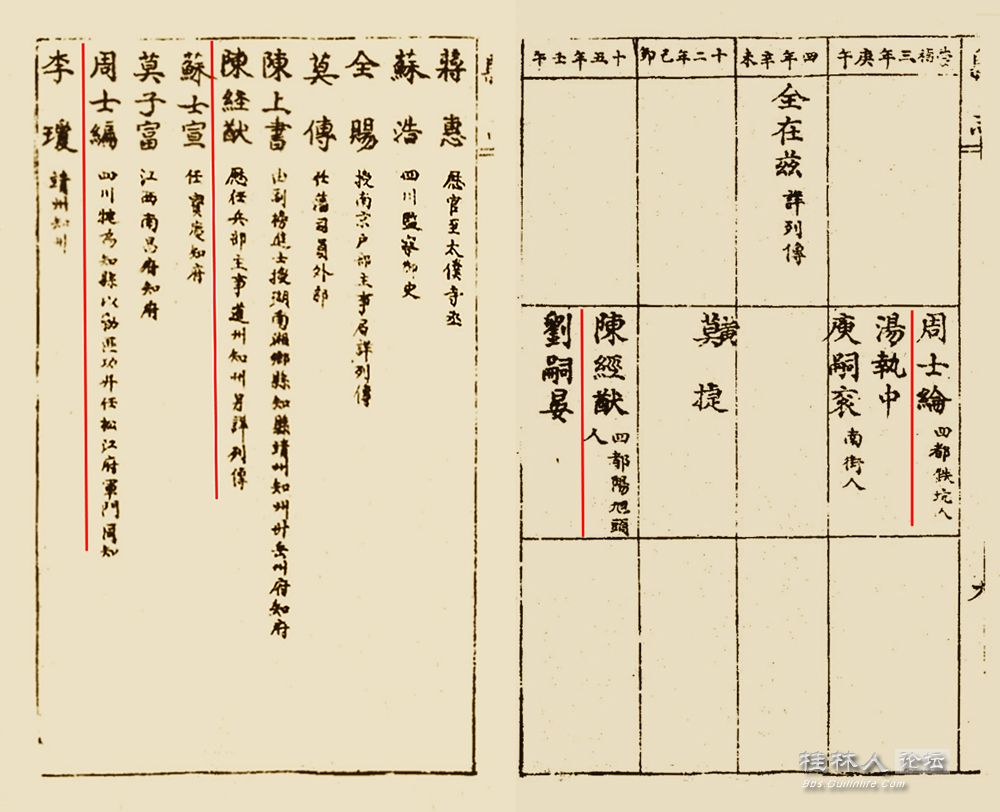 崇禎三年庚午
四年辛未
十二年己卯
十五年壬午
全在茲 詳列傳
周士綸 四都鉄坑人
湯執中
庾嗣袞 南街人
莫捷
陳經猷 四都陽旭頭人
劉嗣晏
蔣惠 歷官至太僕寺丞
蘇浩 四川監察御史
全賜 授南京戶部主事另詳列傳
莫傳 任藩司員外郎
陳上書 由副榜進士授湖南湘鄉縣知縣靖州知州升岳州府知府
陳經猷 歷任兵部主事道州知州另詳列傳
蘇士宣 任寶慶知府
莫子富 江西南昌府知府
周士編 四川犍為知縣以勦匪功升任松江府軍門同知
李瓊 靖州知州
桂林人论坛
bbs.guilinlife.com